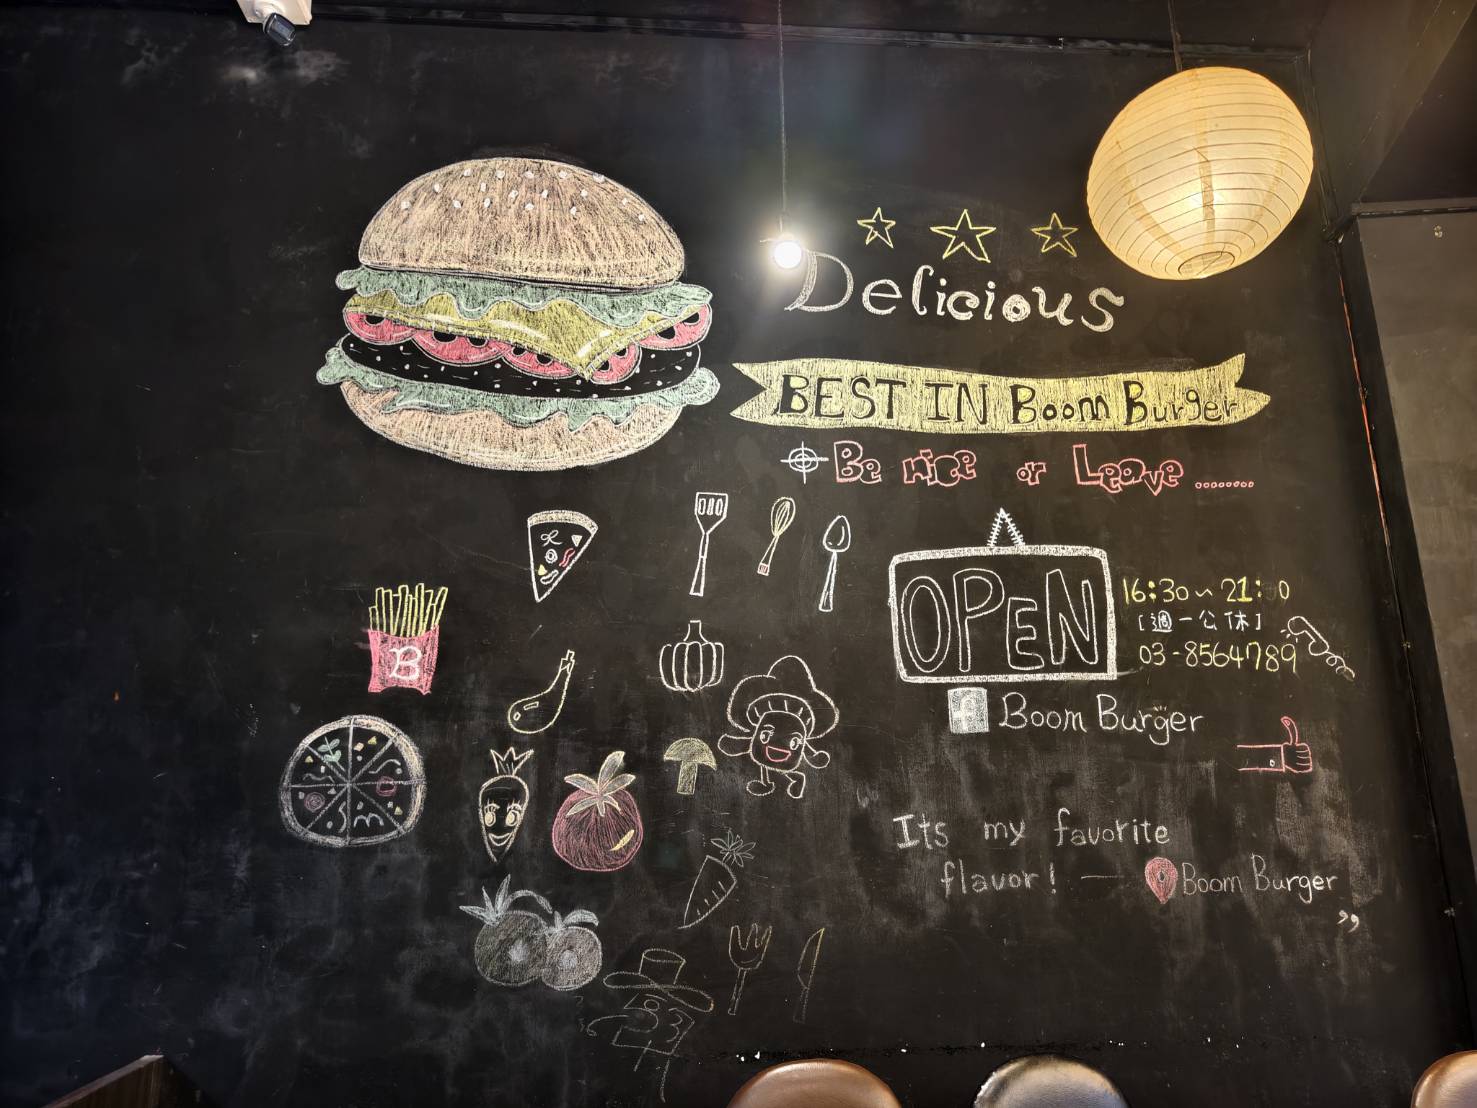 Delicious
BEST IN Boom Burger
Be nice or Leave ........
OPEN
16:30~21:
[週一公休]
03-8564789
f Boom Burger
B
Its my favorite
flavor! — Boom Burger
”